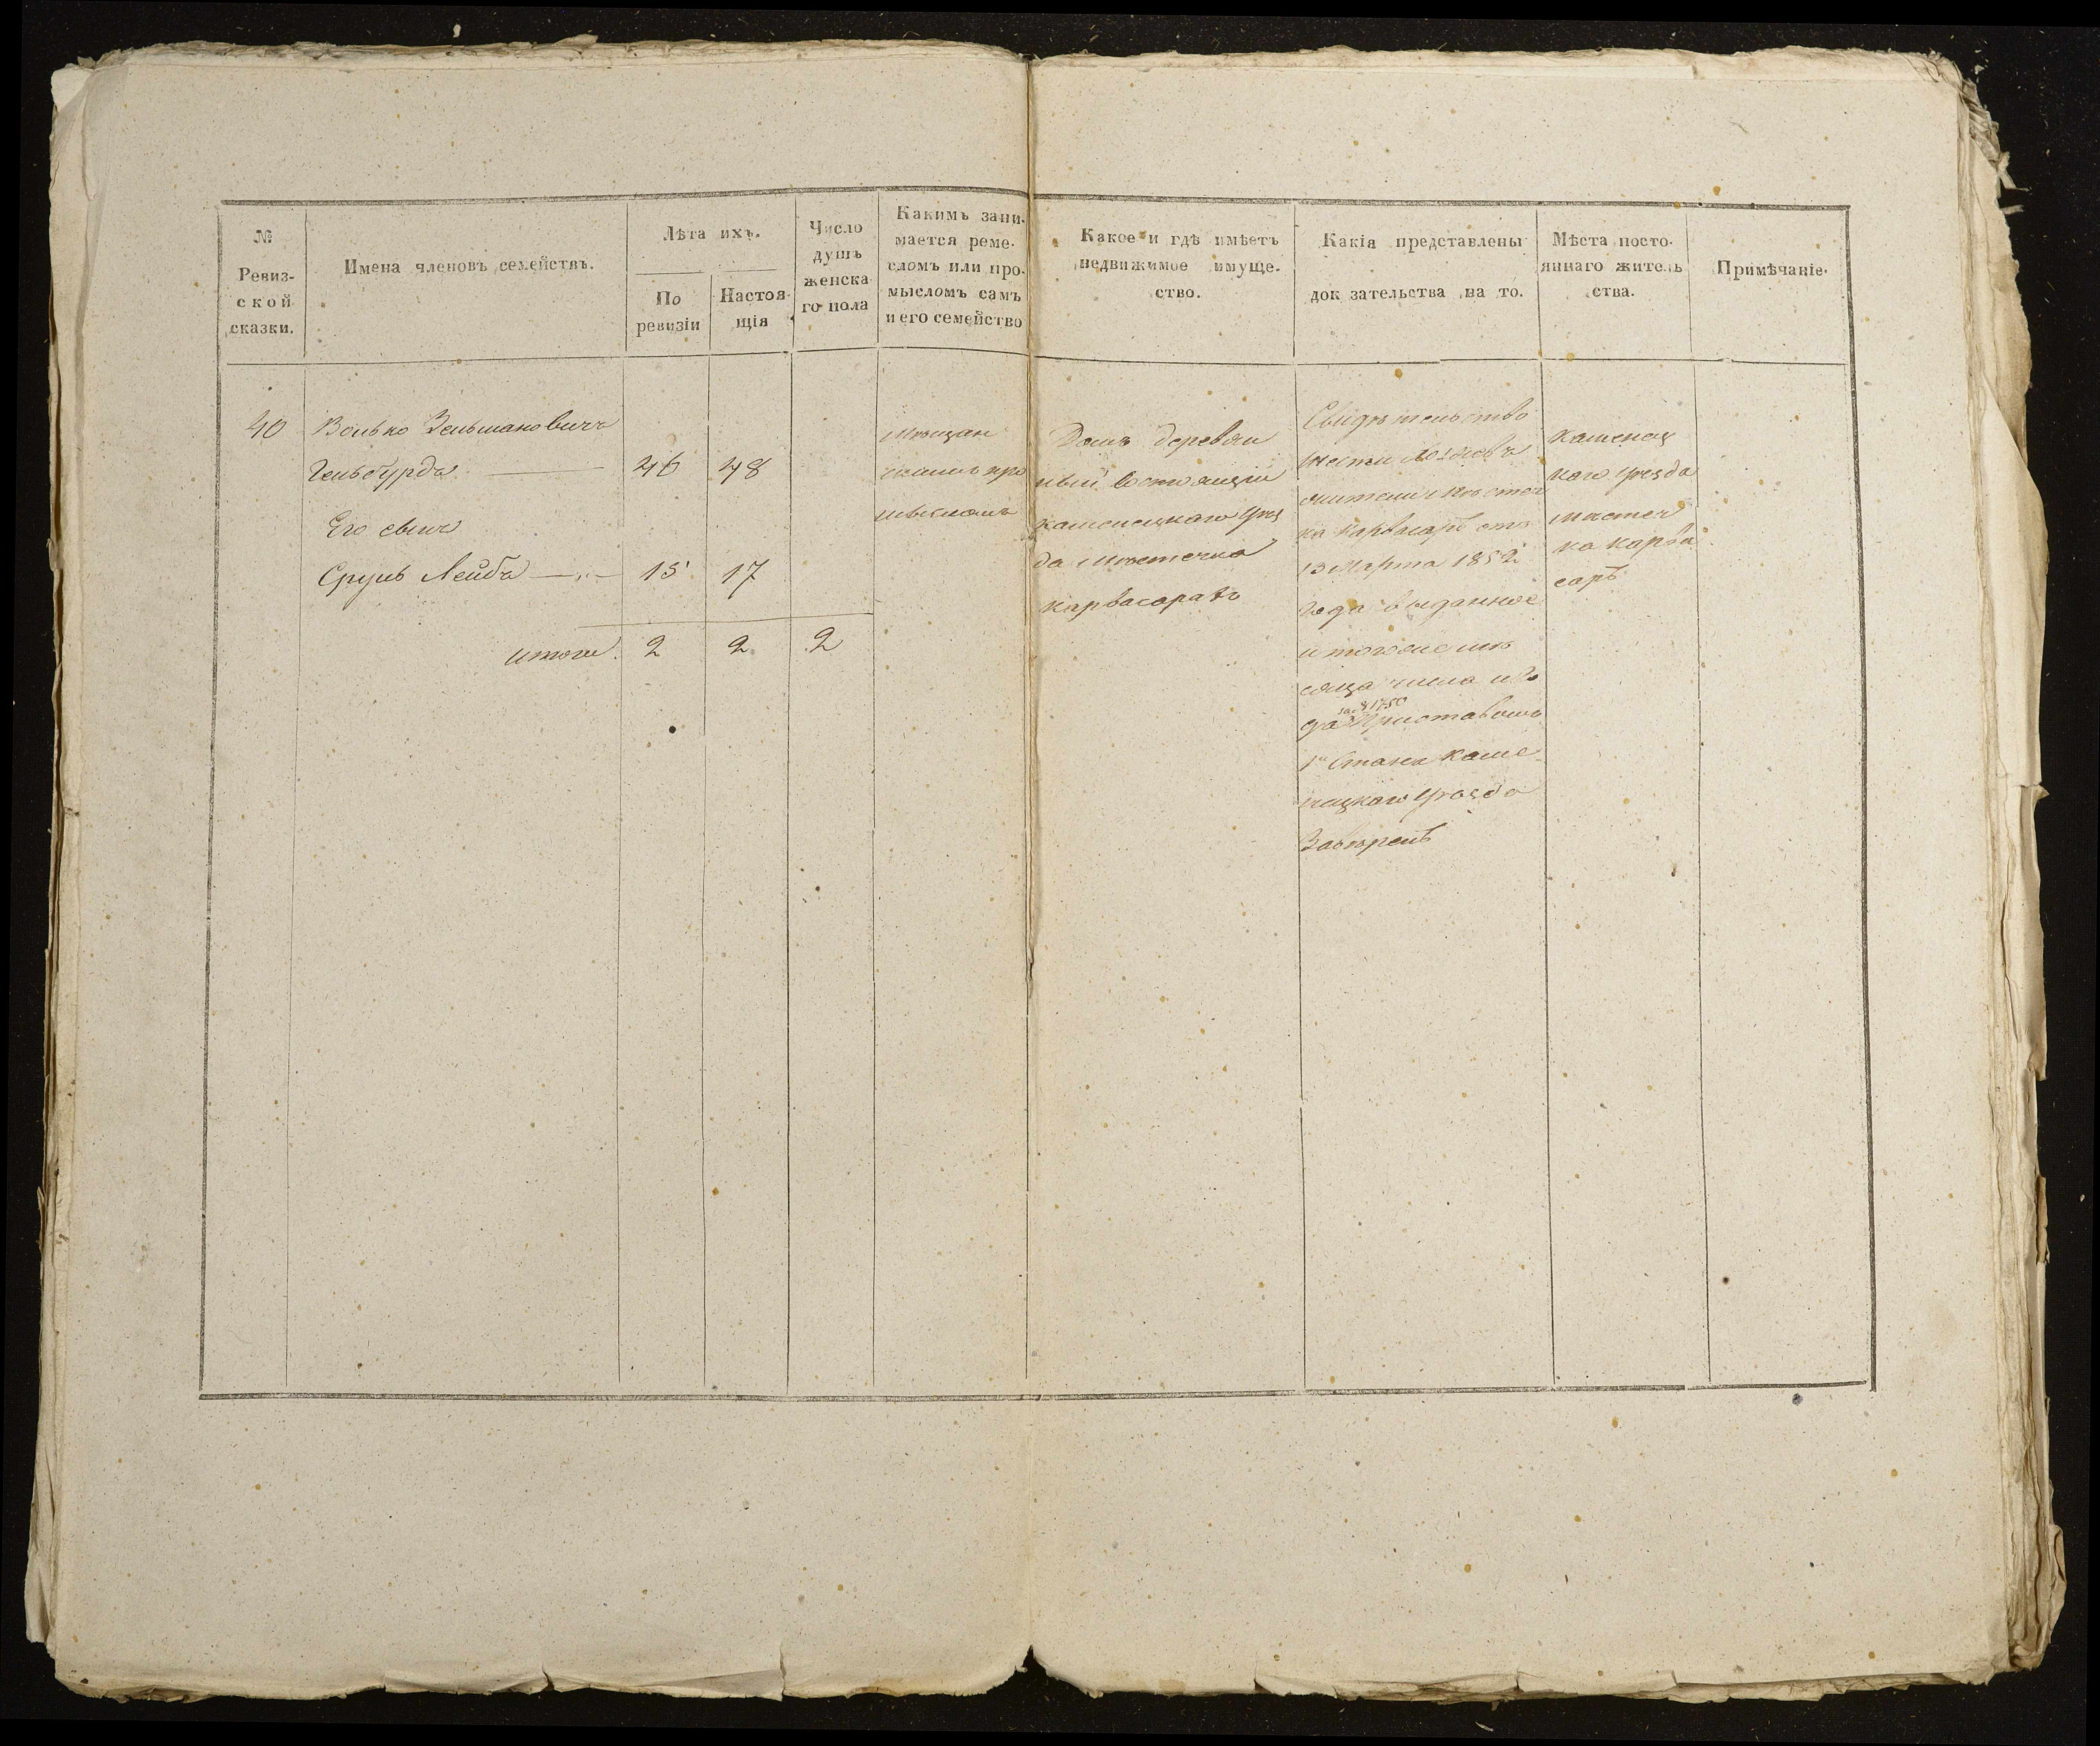 №
Ревиз-
ской
сказки.
Имена членовъ семействъ.
Лѣта ихъ.
По
ревизіи
Настоя-
щія
Число
душъ
женска
го пола
Какимъ зани-
мается реме-
сломъ или про-
мысломъ самъ
и его семейство
Какое и гдѣ имѣетъ
недвижимое имуще-
ство.
Какія представлены
док зательства на то.
Мѣста посто-
яннаго житель
ства.
Примѣчаніе.
40 Волько Зельмановичъ
Гельбурдъ 46 48
Его сынъ
Сруль Лейбъ 15 17
итого 2 2 2
Мѣщан
скимъ про
мысломъ
Домъ деревян
ный состоящій
каменецкаго уѣз
да мѣстечка
карвасаравъ
Свидѣтельство
шести
жители мѣстеч
ка карвасаръ отъ
13 Марта 1852
года выданное
и того же мѣ
сяца числа и го
да за № 1750 Приставомъ
1го Стана Каме
нецкаго уѣзда
Завѣренъ
Каменец
каго уѣзда
мѣстеч
ка карва
саръ